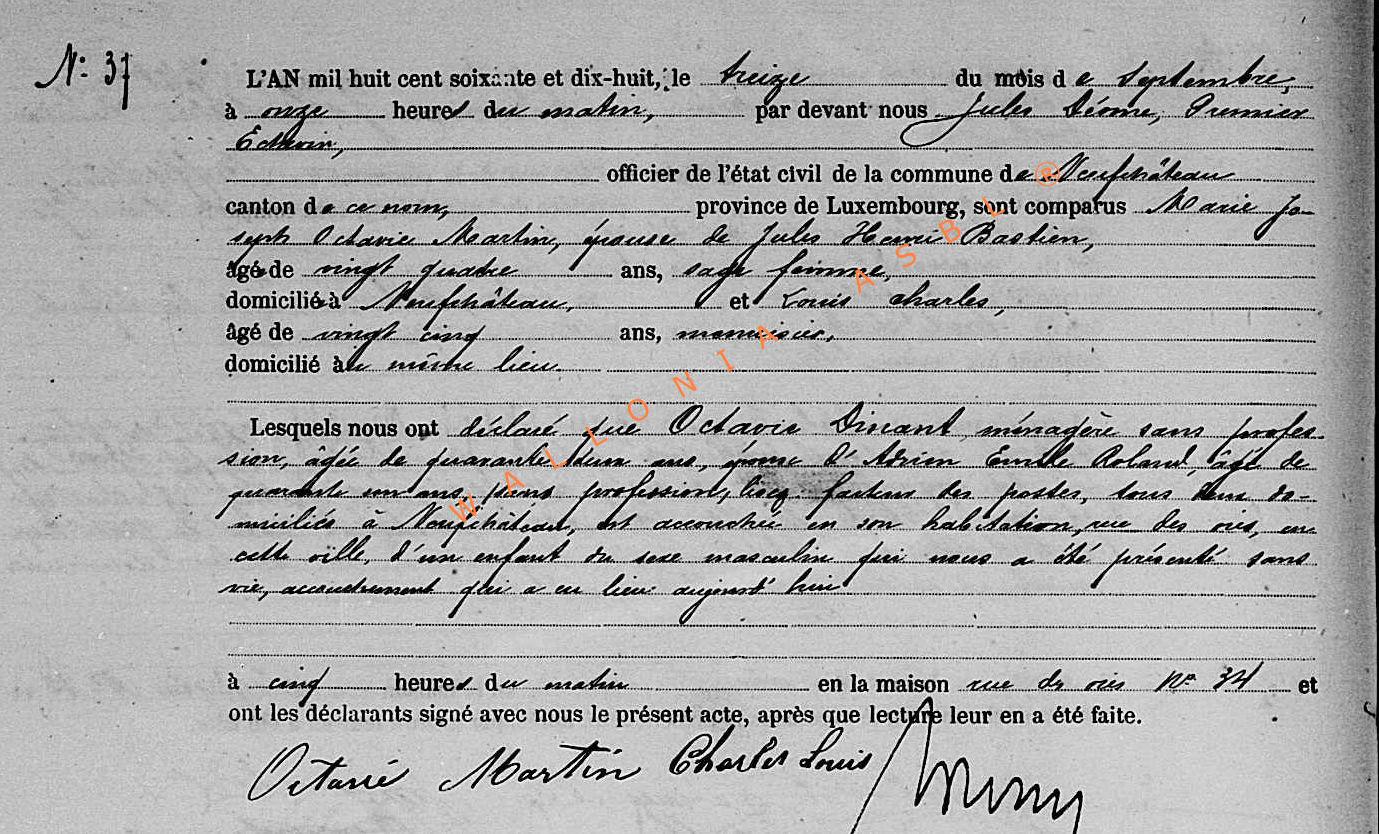 N° 37
L'AN mil huit cent soixante et dix-huit, le treize du mois de Septembre,
à onze heures du matin, par devant nous Jules Premier
Echevin,
officier de l'état civil de la commune de Neufchâteau
canton de ce nom, province de Luxembourg, sont comparus Marie Jo-
seph Octavie Martin, épouse de Jules Henri Bastien,
âgé de vingt quatre ans, sage femme,
domicilié à Neufchâteau, et Louis Charles,
âgé de vingt cinq ans, menuisier,
domicilié au même lieu
Lesquels nous ont déclaré que Octavie Dinant ménagère sans profes-
sion, âgée de quarante deux ans, épouse d'Adrien Emile Roland, âgé de
quarante un ans, sans profession, lisez facteur des postes, tous deux do-
miciliés à Neufchâteau, est accouchée en son habitation, rue des oies, en
cette ville, d'un enfant du sexe masculin qui nous a été présenté sans
vie, accouchement qui a eu lieu aujourd'hui
à cinq heures du matin en la maison rue des oies N° 34 et
ont les déclarants signé avec nous le présent acte, après que lecture leur en a été faite.
Octavie Martin Charles Louis
WALLONIA ASBL ®